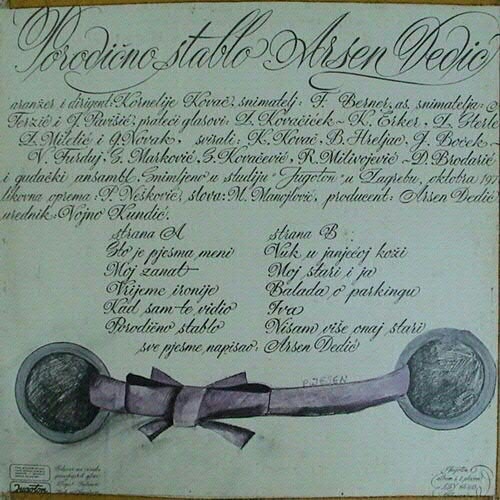 Porodično stablo Arsen Dedić
aranžer i dirigent: Kornelije Kovač, snimatelj: F. Berner, as. snimatelja:
Terzić i J. Paršić, prateći glasovi: Z. Kovačiček - K. Erker,
Z. Miletić i G. Novak, svirali: K. Kovač, B. Hreljac, J. Boček -
V. Furduj, G. Marković, G. Kovačević, R. Milivojević - D. Brodarić
i gudački ansambl. Snimljeno u studiju "Jugoton" u Zagrebu, oktobra 197
likovna oprema: P. Nešković, slova: M. Manojlović, producent: Arsen Dedić
urednik: Vojno Kundić.
strana A
Što je pjesma meni
Moj zanat
Vrijeme ironije
Kad sam te vidio
Porodično stablo
strana B
Vuk u janjećoj koži
Moj stari i ja
Balada o parkingu
Iva
Nisam više onaj stari
sve pjesme napisao: Arsen Dedić
P. JESEN
Jugoton